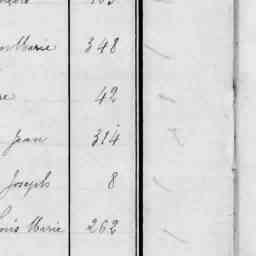 Marie 348
re 42
Jean 314
Joseph 8
Louis Marie 262